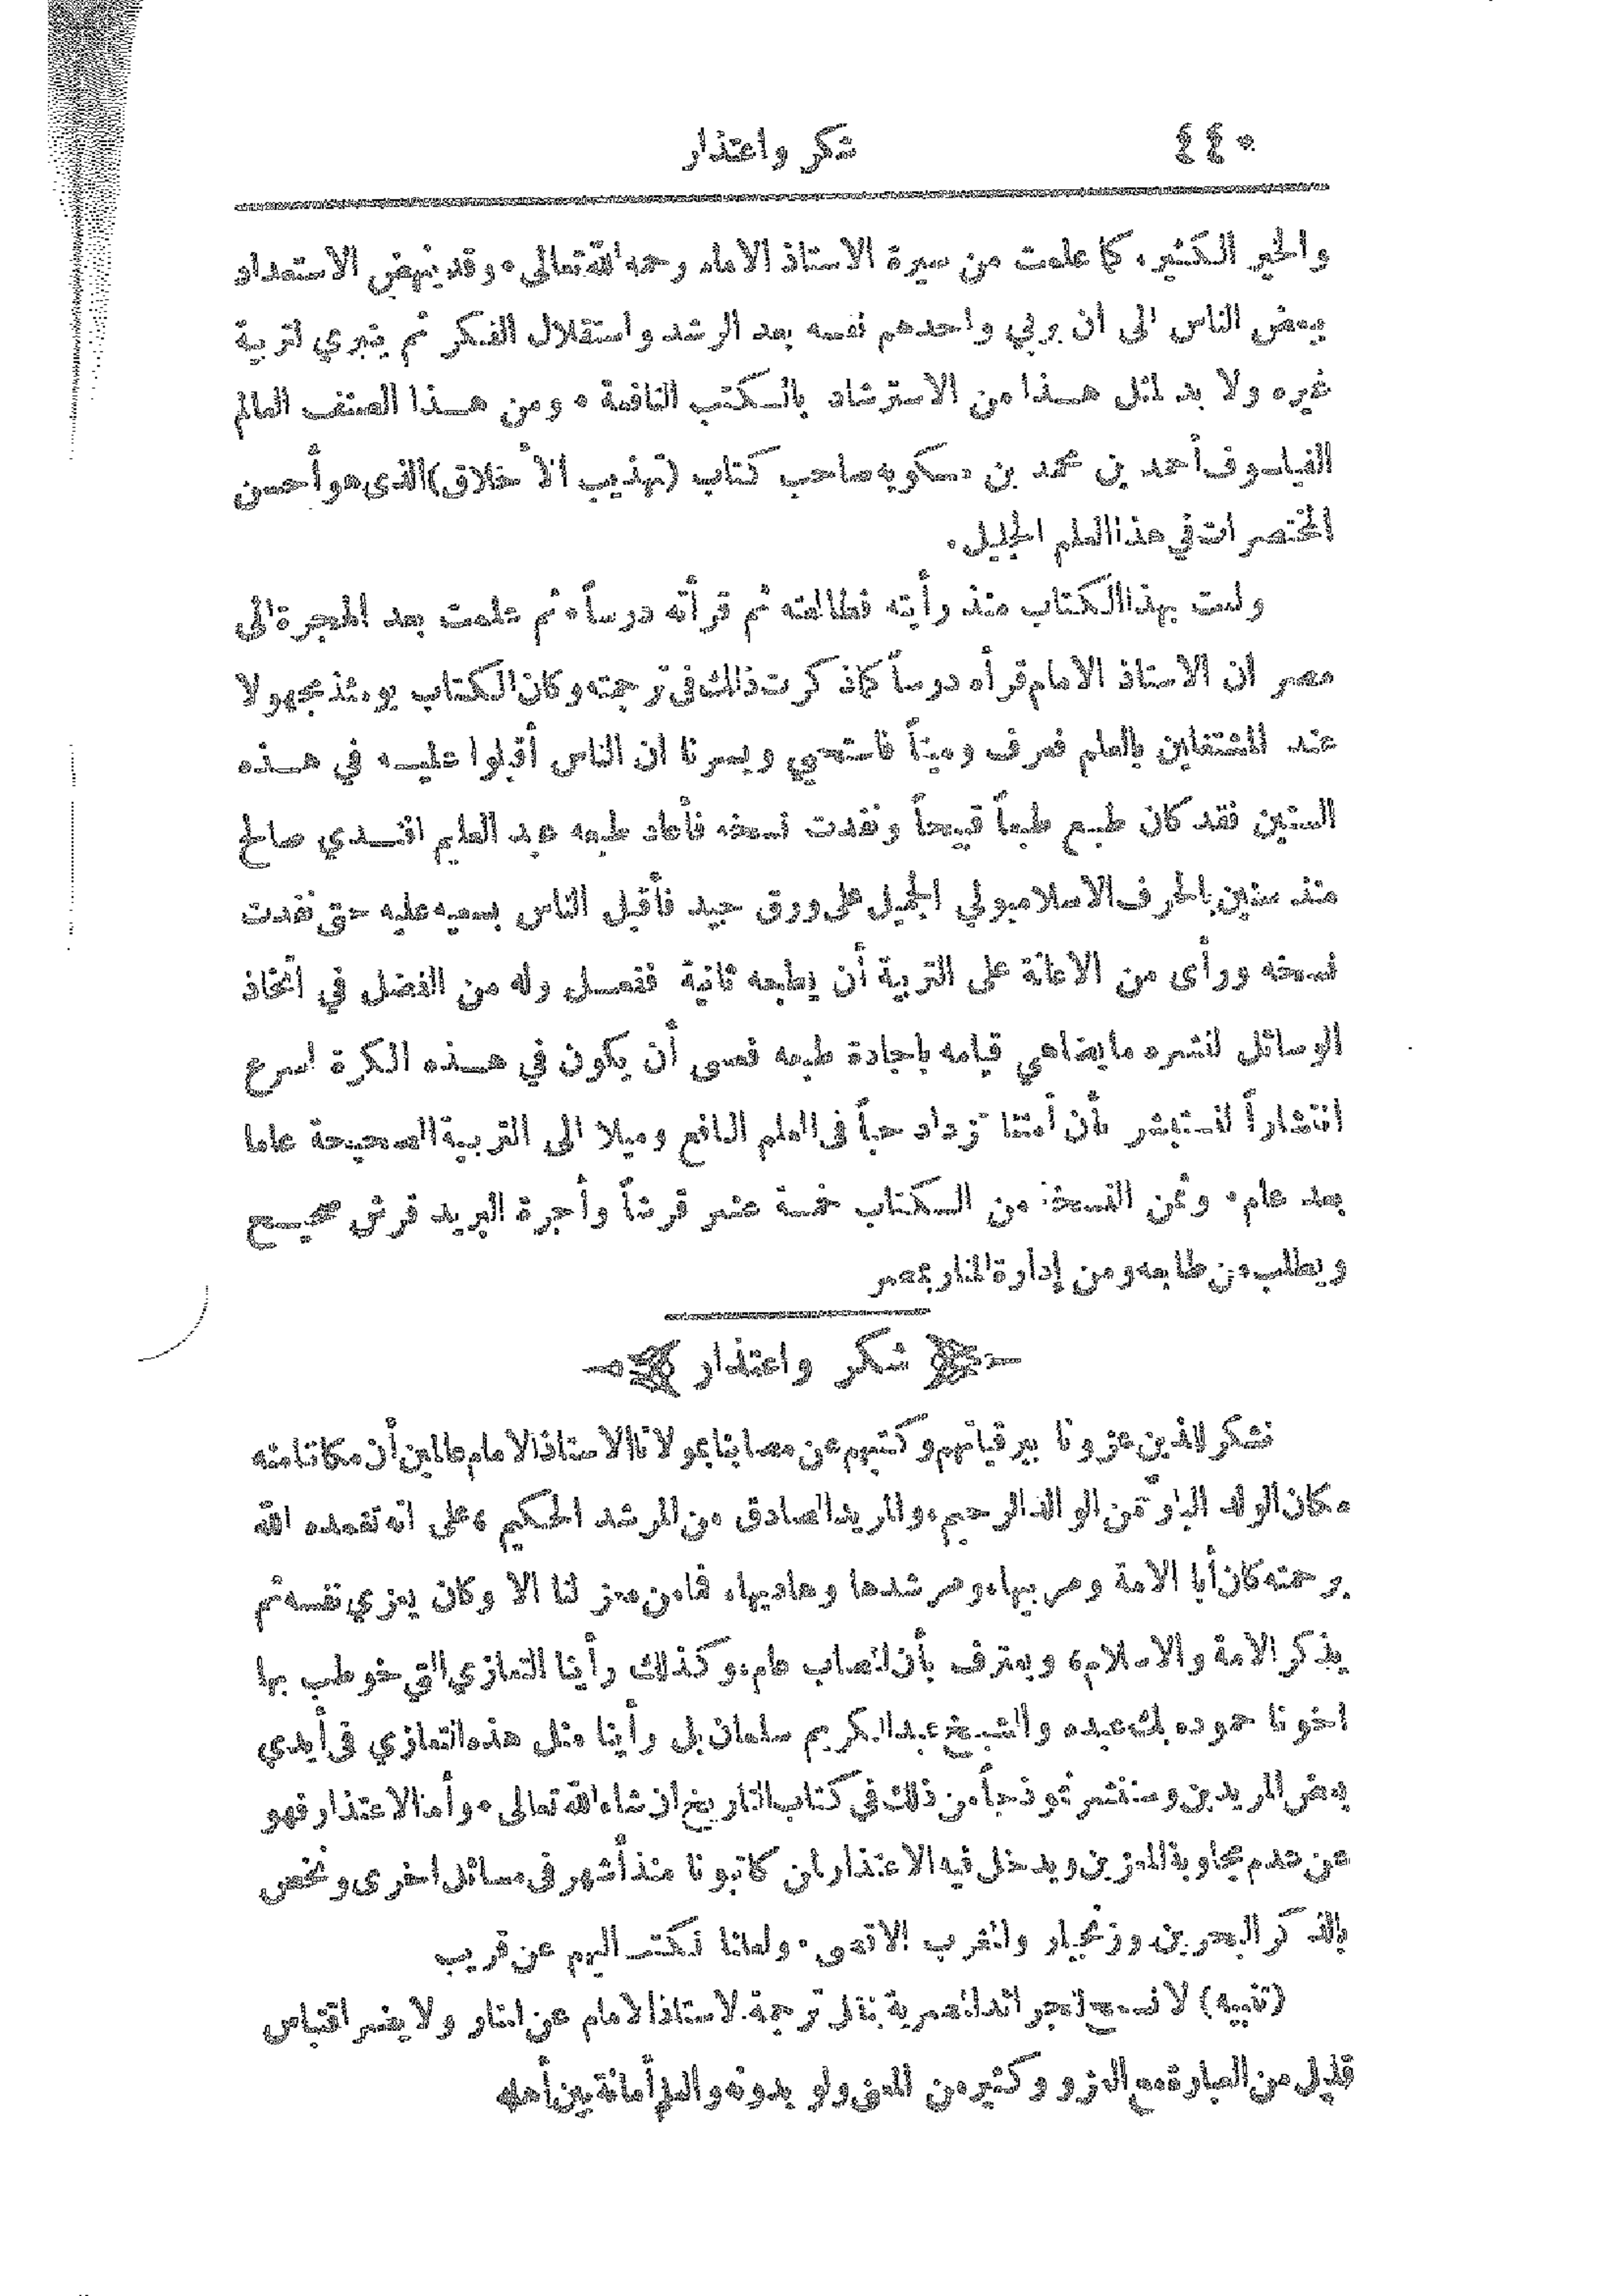 ٤٤٠
شكر واعتذار
والخير الكثير، كما علمت من سيرة الاستاذ الامام رحمه الله تعالى. وقد ينهض الاستعداد
ببعض الناس الى أن يربي واحدهم نفسه بعد الرشد واستقلال الفكر ثم ينبري لتربية
غيره ولا بد لمثل هذا من الاسترشاد بالكتب النافعة. ومن هذا الصنف العالم
الفيلسوف أحمد بن محمد بن مسكويه صاحب كتاب (تهذيب الأخلاق) الذى هو أحسن
المختصرات في هذا العلم الجليل.
ولعت بهذا الكتاب منذ رأيته فطالعته ثم قرأته درساً. ثم علمت بعد الهجرة الى
مصر ان الاستاذ الامام قرأه درساً كما ذكرت ذلك فى ترجمته وكان الكتاب يومئذ مجهولا
عند المشتغلين بالعلم فعرف وميتاً فاستحيي ويسرنا ان الناس أقبلوا عليه في هذه
السنين فقد كان طبع طبعاً قبيحاً ونفدت نسخه فأعاد طبعه عبد العليم افندي صالح
منذ سنين بالحرف الاسلامبولي الجميل على ورق جيد فأقبل الناس بسعيه عليه حتى نفدت
نسخه ورأى من الاعانة على التربية أن يطبعه ثانية ففعل وله من الفضل في اتخاذ
الوسائل لنشره ما يضاهي قيامه باجادة طبعه فعسى أن يكون في هذه الكرة اسرع
انتشاراً لنستبشر بأن أمتنا تزداد حباً فى العلم النافع وميلا الى التربية الصحيحة عاما
بعد عام. وثمن النسخة من الكتاب خمسة عشر قرشاً وأجرة البريد قرش صحيح
ويطلب من طابعه ومن إدارة المنار بمصر
شكر واعتذار
نشكر للذين عزونا ببرقياتهم وكتبهم عن مصابنا بمولانا الاستاذ الامام عالمين أن مكاننا منه
مكان الولد البار من الوالد الرحيم، والمريد الصادق من المرشد الحكيم، على انه تغمده الله
برحمته كان أبا الامة ومربيها، ومرشدها وهاديها، فما من معز لنا الا وكان يعزي نفسه ثم
يذكر الامة والاسلام، ويعترف بأن المصاب عام، وكذلك رأينا التعازي التى خوطب بها
اخونا حموده بك عبده والشيخ عبد الكريم سلمان بل رأينا مثل هذه التعازي فى أيدي
بعض المريدين وسننشر نموذجاً من ذلك في كتاب التاريخ ان شاء الله تعالى. وأما الاعتذار فهو
عن عدم مجاوبة المعزين ويدخل فيه الاعتذار لمن كاتبونا منذ أشهر فى مسائل اخرى ونخص
بالذكر البحرين وزنجبار والغرب الاقصى. ولعلنا نكتب اليهم عن قريب
(تنبيه) لا نسمح لجرائد المصرية بنقل ترجمة الاستاذ الامام عن المنار ولا يضر اقتباس
قليل من العبارة مع العزو وكثير من المعنى ولو بدونه والعلم أمانة بين أهله